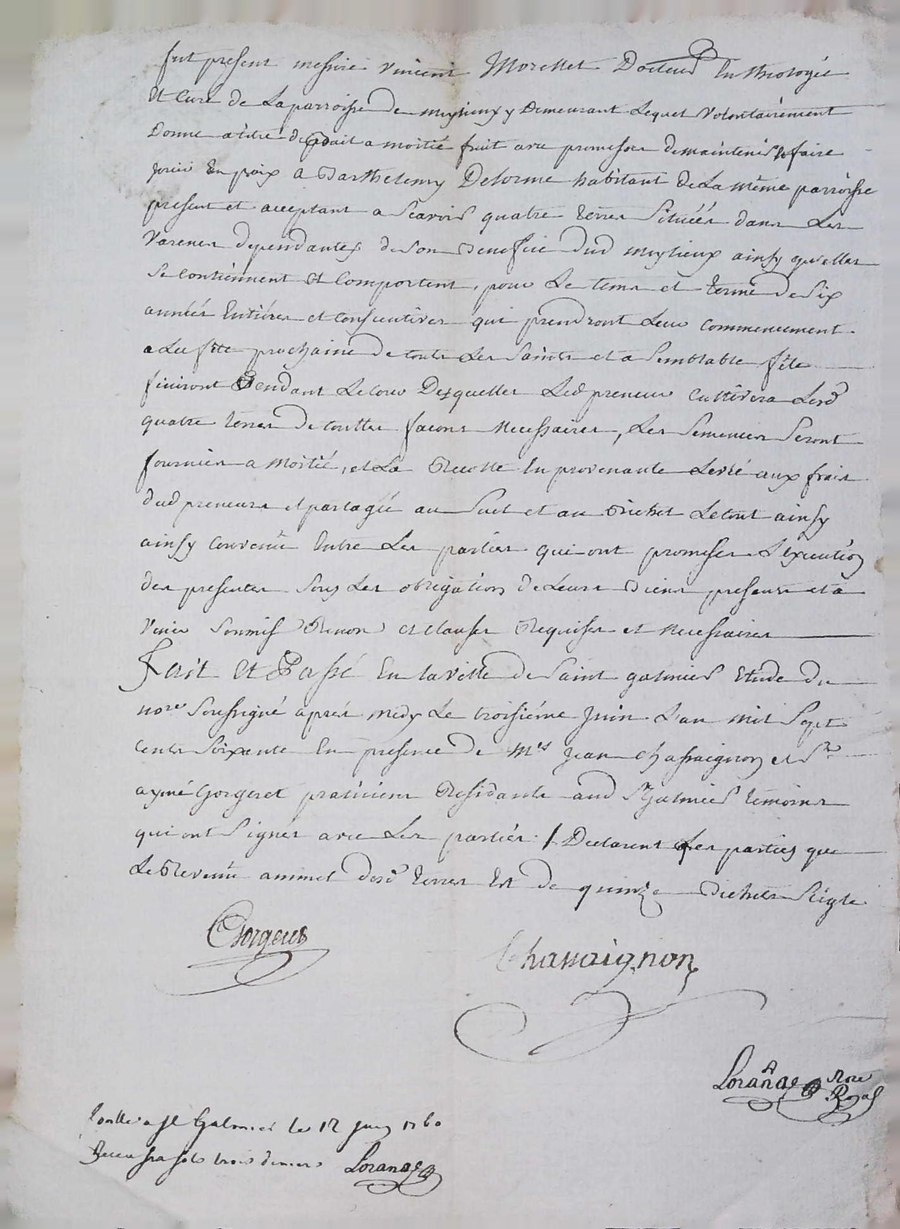 fut present messire vincent Morellet Docteur En theologie
Et Curé de La parroisse de meylieux y Demeurant Lequel Volontairement
Donne a titre de bail a moitié fruit avec promesse de maintenir & faire
jouir En paix a Barthelemy Delorme habitant de La même parroisse
present et acceptant a Scavoir quatre terres Situées dans Les
Varenes dependantes de Son Benefice dud meylieux ainsy quelles
Se contiennent et Comportent, pour Le tems et terme de Six
années Entiéres et consecutives qui prendront Leur commencement
a La fête prochaine de touts Les Saints et a Semblable fête
finiront Pendant Le cour Desquelles Led preneur Cultivera Lesd
quatre terres De touttes facons Necessaires, Les Semences Seront
fournies a Moitié, et La Recolte En provenante Levée aux frais
dud preneur et partagée au Suel et au Bichet Le tout ainsy
ainsy convenu Entre Les parties qui ont promises L'execution
des presentes Sous Les obligation de Leurs Biens presents et a
Venir Soumis Renon et clauses Requises et Necessaires
Fait Et Passé En la ville de Saint galmier Etude du
nore Soussigné aprés midy Le troisiéme Juin L'an mil Sept
Cents Soixante En presence de Mes Jean Chassaignon et Sr
aymé Gorgeret praticiens Residants aud St Galmier temoins
qui ont Signes avec Les parties / Declarent Les parties que
Le Revenu annuel desd terres Est de quinze Bichets Seigle
Gorgeret
Chassaignon
Lorange Nore
Royal
Conlle a St Galmier le 12 juin 1760
Receu sols trois deniers Lorange